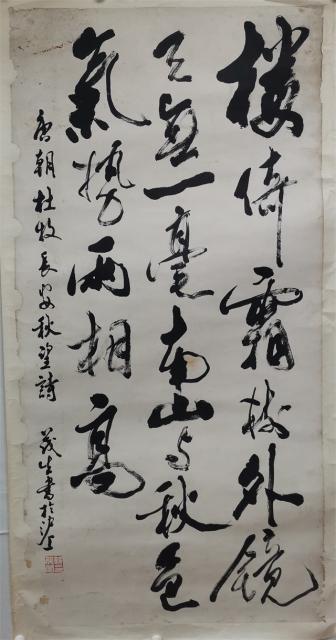 樓倚霜樹外鏡
天無一毫南山与秋色
氣勢兩相高
唐朝杜牧長安秋望詩
茂生書於沪上